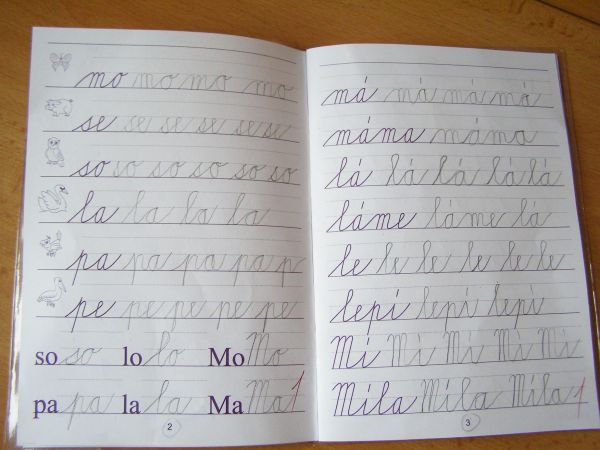 mo mo mo mo
se se se se se se
so so so so so so
la la la la
pa pa pa pa p
pe pe pe pe pe
so so lo lo Mo Mo
pa pa la la Ma Ma 1
2
má má má má
máma máma
lá lá lá lá lá
láme láme lá
le le le le le le
lepí lepí lepí
Mi Mi Mi Mi Mi
Míla Míla Míla 1
3